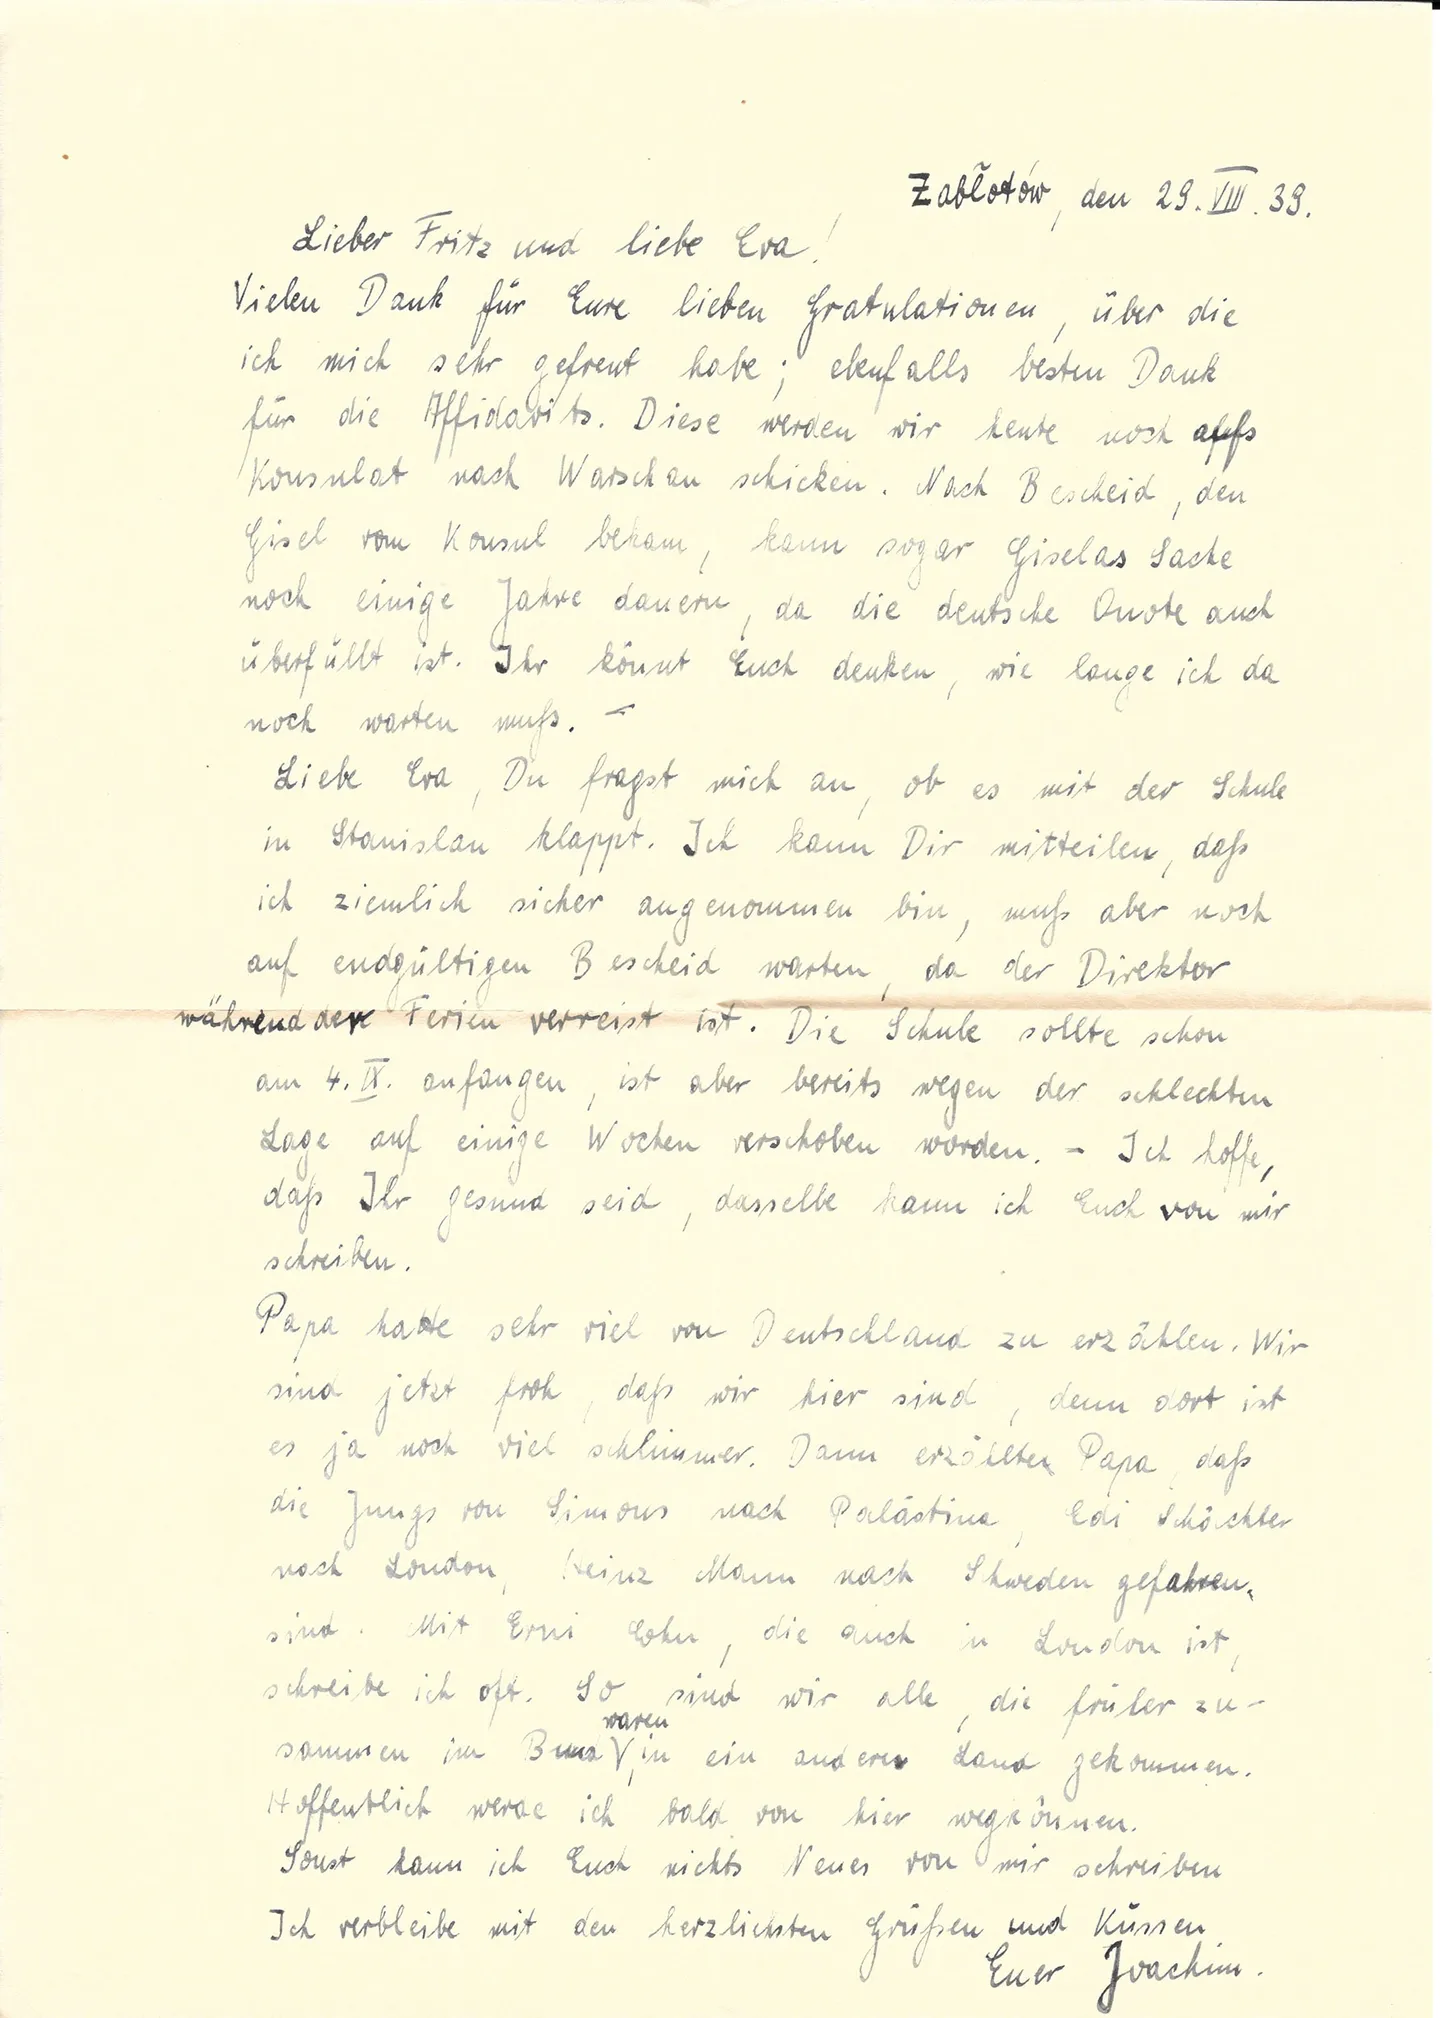 Zabłotów, den 29. VIII. 39.
Lieber Fritz und liebe Eva!
Vielen Dank für Eure lieben Gratulationen, über die
ich mich sehr gefreut habe; ebenfalls besten Dank
für die Affidavits. Diese werden wir heute noch aufs
Konsulat nach Warschau schicken. Nach Bescheid, den
Gisel vom Konsul bekam, kann sogar Giselas Sache
noch einige Jahre dauern, da die deutsche Quote auch
überfüllt ist. Ihr könnt Euch denken, wie lange ich da
noch warten muß. –
Liebe Eva, Du fragst mich an, ob es mit der Schule
in Stanislau klappt. Ich kann Dir mitteilen, daß
ich ziemlich sicher angenommen bin, muß aber noch
auf endgültigen Bescheid warten, da der Direktor
während der Ferien verreist ist. Die Schule sollte schon
am 4. IX. anfangen, ist aber bereits wegen der schlechten
Lage auf einige Wochen verschoben worden. – Ich hoffe,
daß Ihr gesund seid, dasselbe kann ich Euch von mir
schreiben.
Papa hatte sehr viel von Deutschland zu erzählen. Wir
sind jetzt froh, daß wir hier sind, denn dort ist
es ja noch viel schlimmer. Dann erzählte Papa, daß
die Jungs von Simons nach Palästina, Edi Schächter
nach London, Heinz Mann nach Schweden gefahren
sind. Mit Erni Cohn, die auch in London ist,
schreibe ich oft. So sind wir alle, die früher zu-
sammen im Bund waren, in ein anderes Land gekommen.
Hoffentlich werde ich bald von hier wegkönnen.
Sonst kann ich Euch nichts Neues von mir schreiben
Ich verbleibe mit den herzlichsten Grüßen und Küssen
Euer Joachim.